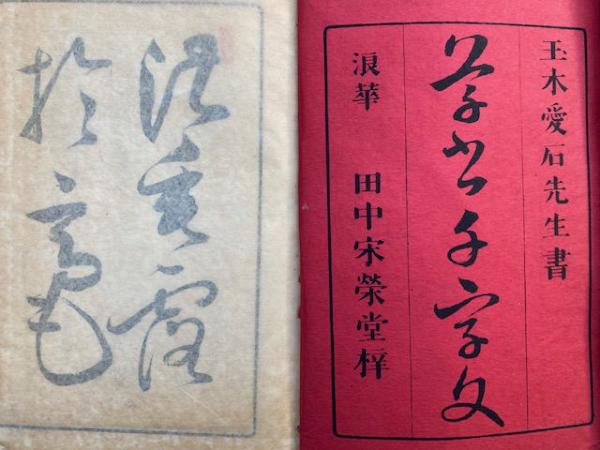 玉木愛石先生書
草書千字文
浪華 田中宋榮堂梓
垂露
於